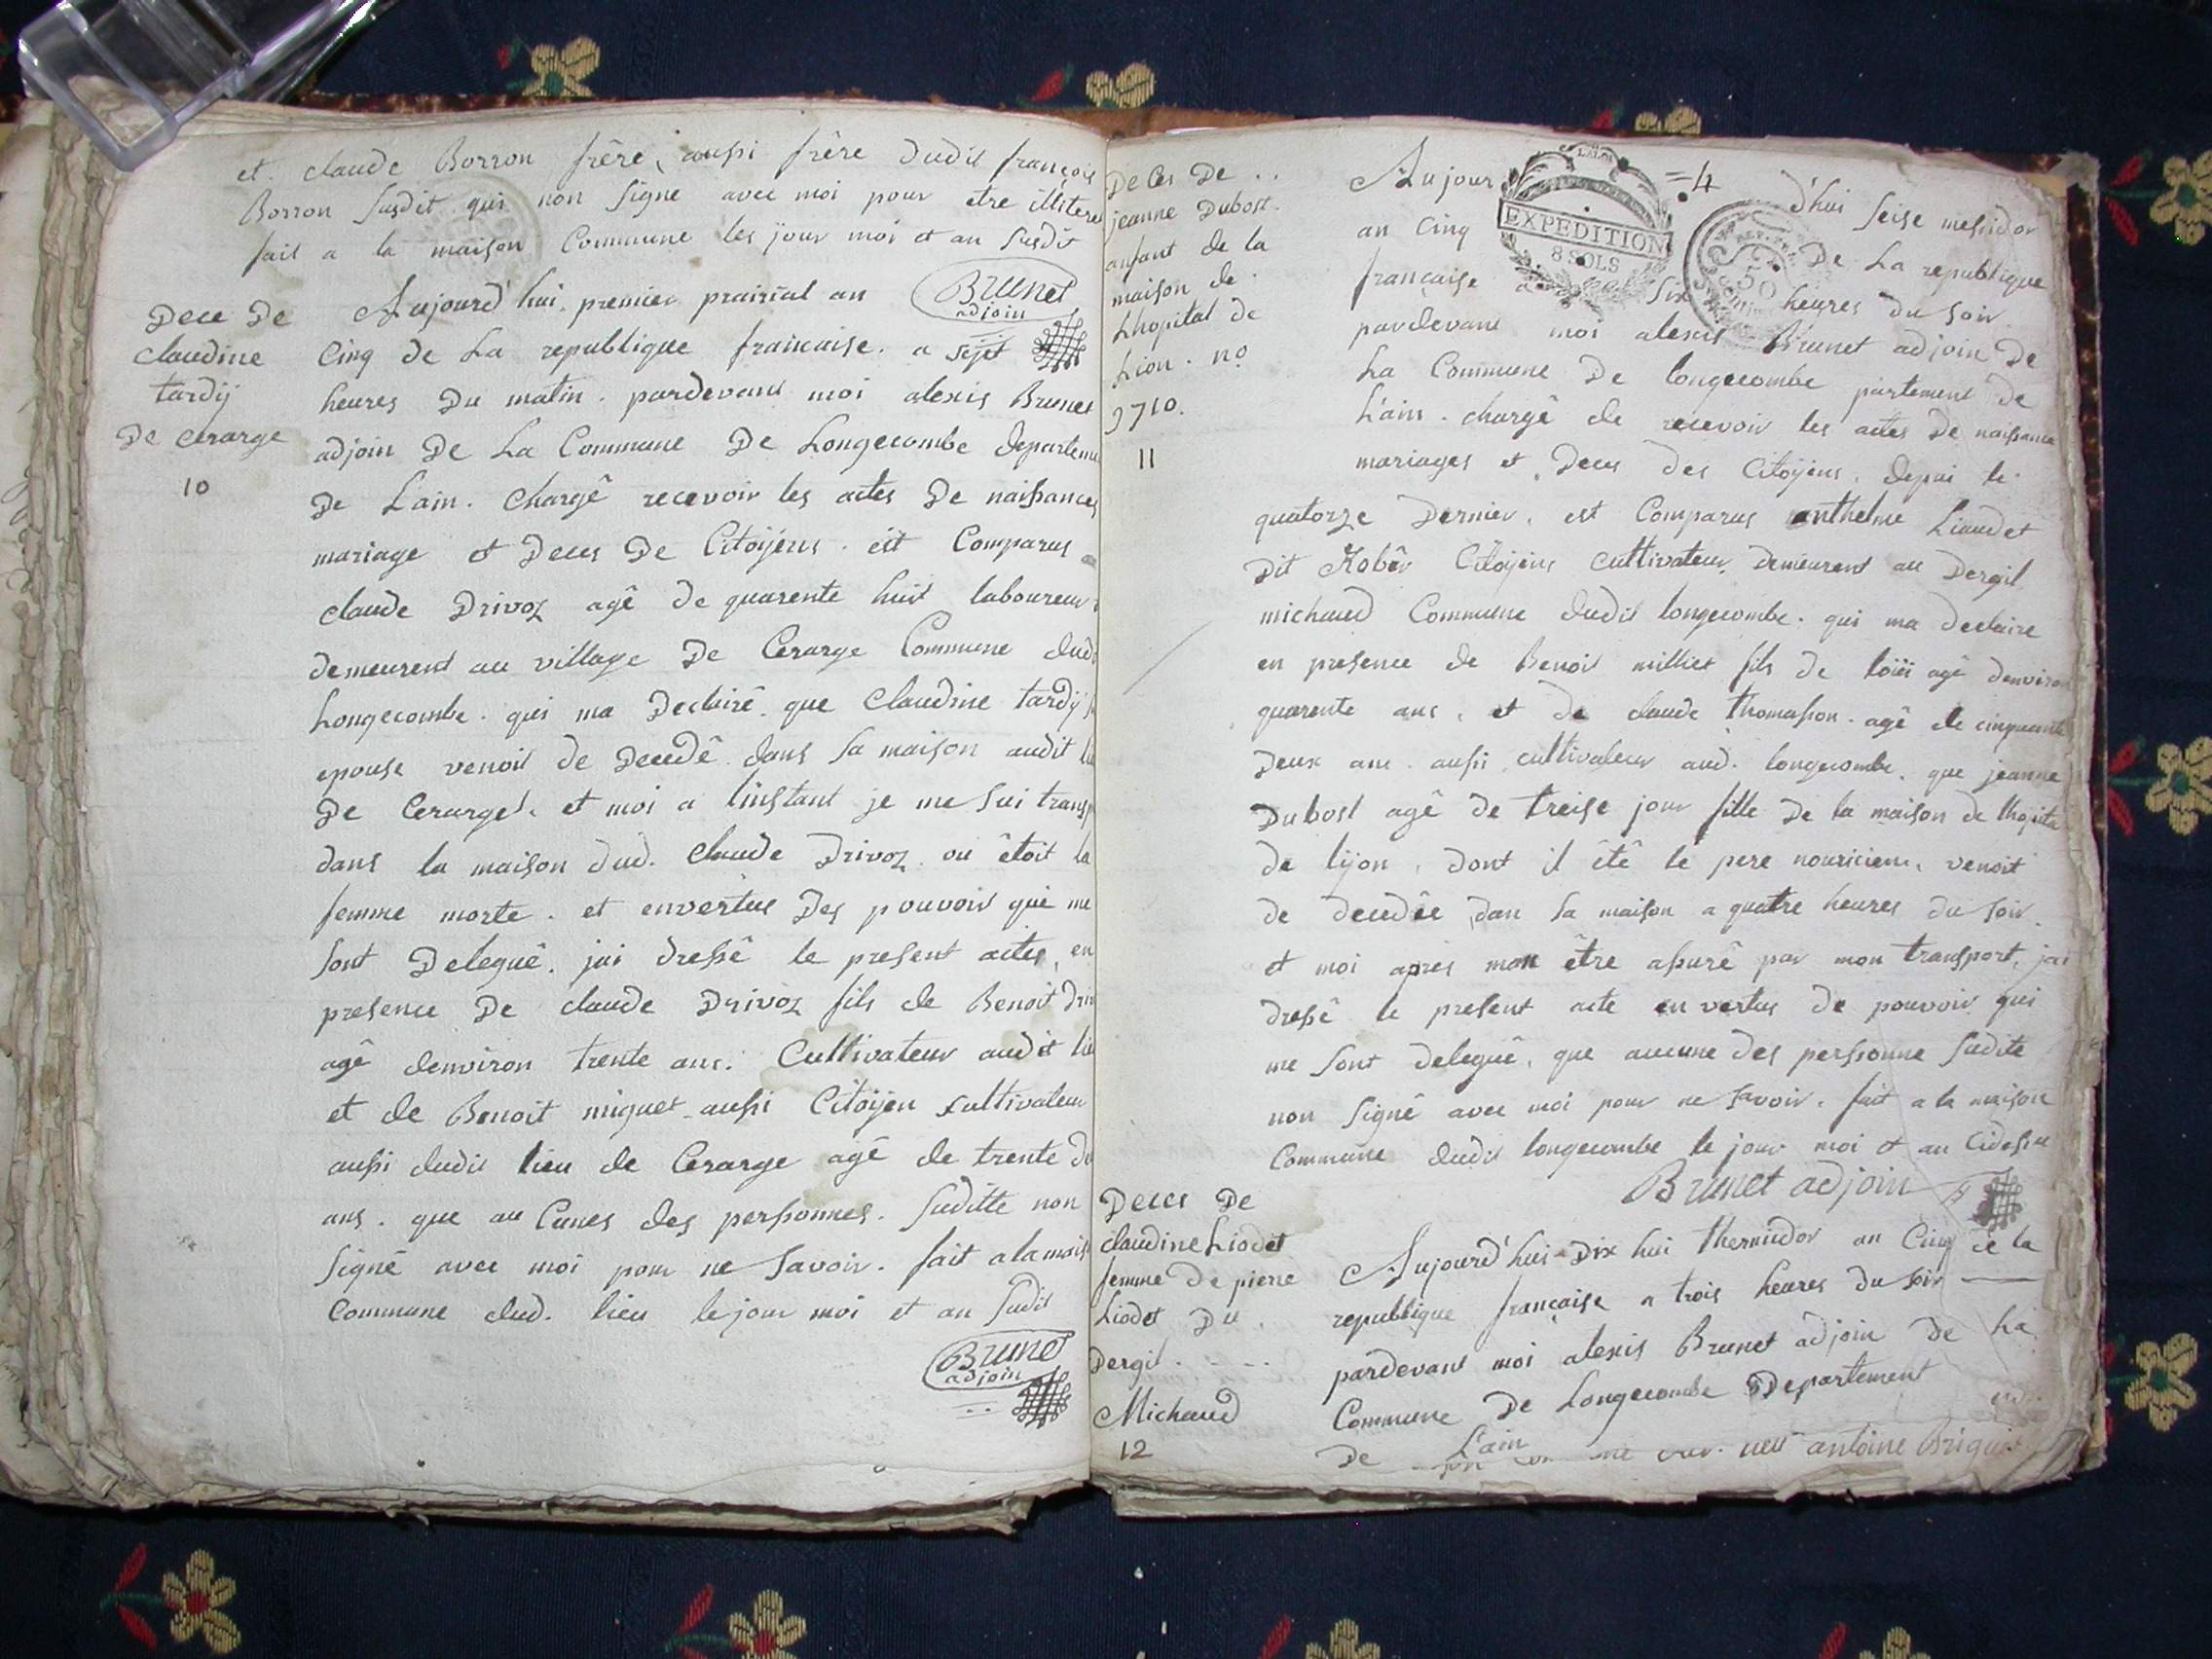 et. claude Borron frêre, aussi frêre dudit françois
Borron susdit qui non signe avec moi pour etre illitere
fait a la maison Commune les jour moi et an susdit
Brunet
adjoin
Dece De
claudine
tardij
De cerarge
10
Aujourd'hui. premier prairial an
Cinq de La republique francaise. a sejet
heures Du matin. pardevant moi alexis Brunet
adjoin De La Commune De Longecombe departeme
De L'ain. Chargê recevoir les actes De naissances
mariage et Deces De Citoÿens. est Comparus
claude Drivoz agê de quarente huit laboureur
demeurent au village De Cerarge Commune dud
Longecombe. qui ma Declairê que Claudine tardij
epouse venoit de Decedê dans sa maison audit li
De Cerarge. et moi a linstant je me sui transp
dans la maison dud. Claude Drivoz. ou êtoit la
femme morte. et envertus Des pouvoir que me
sont Deleguê. jai dressê le present actes, en
presence De claude Drivoz fils de Benoit Driv
agê denviron trente ans. Cultivateur audit lie
et de Benoit miguet aussi Citoÿen cultivateur
aussi dudit lieu de Cerarge agê de trente de
ans. que au Cunes des personnes. suditte non
signê avec moi pour ne savoir. fait a la mais
Commune dud. lieu le jour moi et an sudit
Brunet
adjoin
Deces De ..
jeanne Dubost.
anfant de la
maison de.
Lhopital de
Lion. no
9710.
11
=4
EXPEDITION
8 SOLS
50
Aujour d'hui seise messidor
an Cinq De La republique
française a six heures du soir
pardevant moi alexis Brunet adjoin De
La Commune De longecombe partement de
L'ain. chargê de recevoir les actes De naissance
mariages et Deces des Citoÿens. depui le
quatorze Dernier. est Comparus anthelme Liaudet
Dit Robêr Citoÿens cultivateur demeurent au Dergil
michaud Commune dudit longecombe. qui ma declaire
en presence de Benoit milliet fils de loüi agê denviron
quarente ans. et de claude thomasson. agê de cinquante
Deux ans. aussi cultivateur aud. longecombe. que jeanne
Dubost agê de treise jour fille De la maison de lhopita
de lijon, dont il êtê le pere nouriciens. venoit
de decedêe dan sa maison a quatre heures du soir.
et moi apres man être assurê par mon transport. jai
dressê le present acte en vertus de pouvoir qui
me sont deleguê, que aucune des personne sudite
non signê avec moi pour ne savoir. fait a la maison
Commune dudit longecombe le jour moi et an Cidessu
Brunet adjoin
Deces De
claudine Liodet
femme de piere
Liodet Du
Dergil. - --
Michaud
12
Aujourd'hui Dix hui thermidor an Cinq de la
republique française a trois heures du soir
pardevant moi alexis Brunet adjoin De La
Commune De Longecombe Departement
De L'ain
antoine